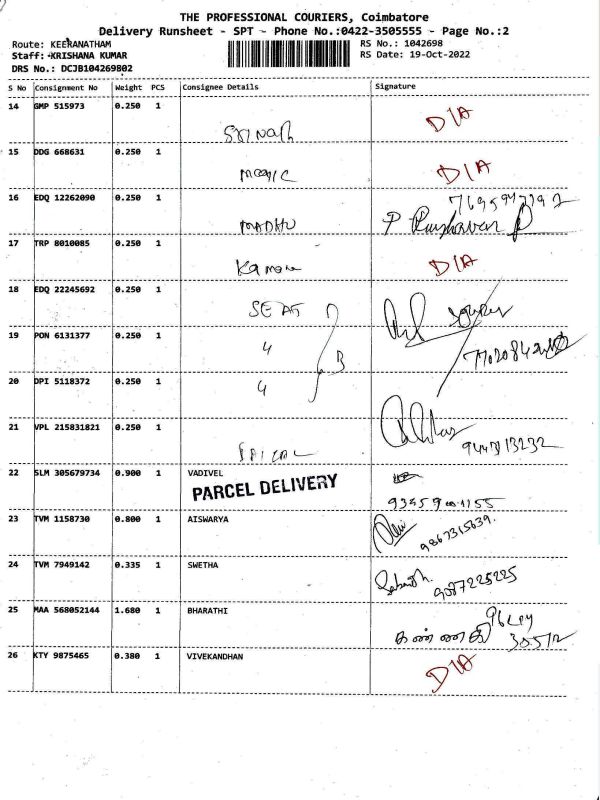 THE PROFESSIONAL COURIERS, Coimbatore
Delivery Runsheet - SPT - Phone No.:0422-3505555 - Page No.:2
Route: KEERANATHAM
Staff: KRISHANA KUMAR
DRS No.: DCJB104269802
RS No.: 1042698
RS Date: 19-Oct-2022
S No Consignment No Weight PCS Consignee Details Signature
14 GMP 515973 0.250 1 D/A
15 DDG 668631 0.250 1 D/A
16 EDQ 12262090 0.250 1 MADHU
17 TRP 8010085 0.250 1 D/A
18 EDQ 22245692 0.250 1
19 PON 6131377 0.250 1 4 B
20 DPI 5118372 0.250 1 4
21 VPL 215831821 0.250 1
22 SLM 305679734 0.900 1 VADIVEL
PARCEL DELIVERY
23 TVM 1158730 0.800 1 AISWARYA 9867315639.
24 TVM 7949142 0.335 1 SWETHA 9087225225
25 MAA 568052144 1.680 1 BHARATHI
26 KTY 9875465 0.380 1 VIVEKANDHAN D/A